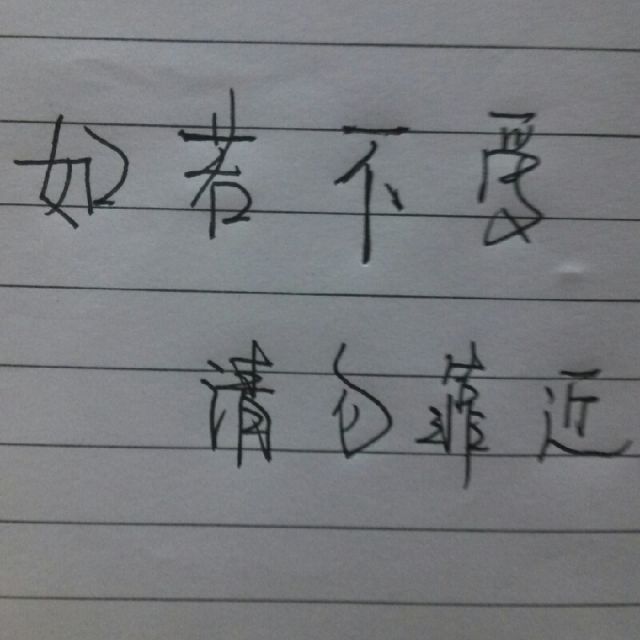 如若不爱
请勿靠近